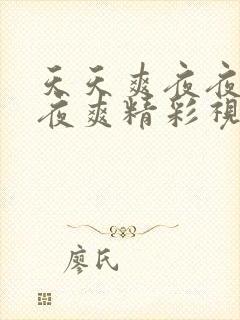 天天爽夜夜
夜爽精彩視
廖氏